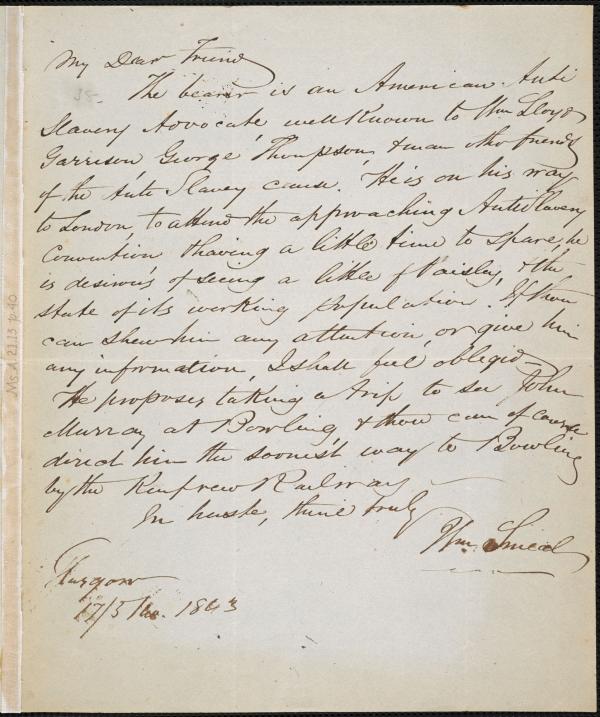 My Dear Friend
38.
The bearer is an American Anti
Slavery Advocate, well known to Wm Lloyd
Garrison, George Thompson, & many other friends
of the Anti Slavey cause. He is on his way
to London, to attend the approaching Antislavery
Convention & having a little time to spare, he
is desirous of seeing a little of Paisley, & the
state of its working population. If thou
can shew him any attention, or give him
any information, I shall feel obliged.
He proposes taking a trip to see John
Murray at Bowling, & thou can of course
direct him the soonest way to Bowling
by the Renfrew Railway
In haste, thine truly
Wm. Smeal
Glasgow
17/5 mo. 1843
Ms.A.2.1.13 p.40